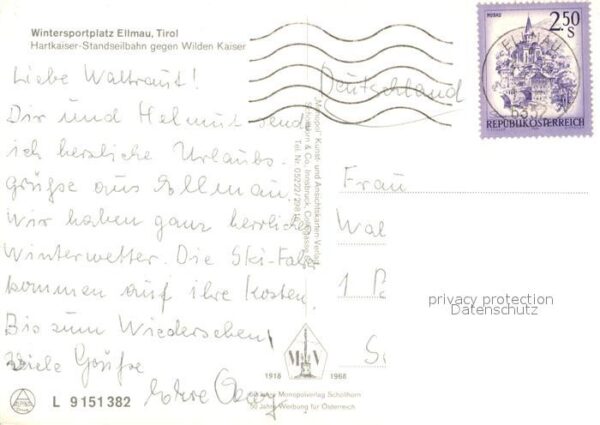 Wintersportplatz Ellmau, Tirol
Hartkaiser-Standseilbahn gegen Wilden Kaiser
Liebe Waltraut!
Dir und Helmut send
ich herzliche Urlaubs-
grüße aus Ellmau.
Wir haben ganz herrliches
Winterwetter. Die Ski-Fahrer
kommen auf ihre Kosten.
Bis zum Wiedersehen!
viele Grüße
Deutschland
Frau
Wal
1
privacy protection
Datenschutz
MURAU
2.50
S
ELLMAU
REPUBLIK ÖSTERREICH
"Monopol" Kunst- und Ansichtskarten-Verlag
Schöllhorn & Co., Innsbruck,
Tel. Nr. 05222/
1918 1968
50 Jahre Monopolverlag Schöllhorn
50 Jahre Werbung für Österreich
L 9151382